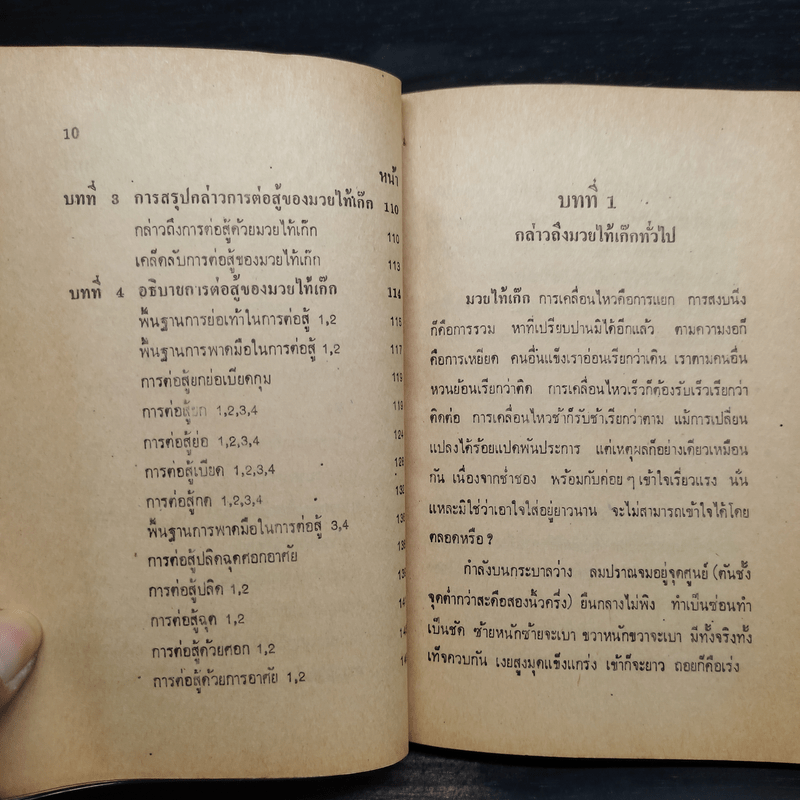 10
หน้า
บทที่ 3 การสรุปกล่าวการต่อสู้ของมวยไท้เก๊ก 110
กล่าวถึงการต่อสู้ด้วยมวยไท้เก๊ก 110
เคล็ดลับการต่อสู้ของมวยไท้เก๊ก 113
บทที่ 4 อธิบายการต่อสู้ของมวยไท้เก๊ก 114
พื้นฐานการย่อเท้าในการต่อสู้ 1,2 116
พื้นฐานการพาดมือในการต่อสู้ 1,2 117
การต่อสู้ยกย่อเบียดกุม
การต่อสู้ยก 1,2,3,4
การต่อสู้ย่อ 1,2,3,4 124
การต่อสู้เบียด 1,2,3,4
การต่อสู้กด 1,2,3,4
พื้นฐานการพาดมือในการต่อสู้ 3,4
การต่อสู้ปลิดฉุดศอกอาศัย
การต่อสู้ปลิด 1,2
การต่อสู้ฉุด 1,2
การต่อสู้ด้วยศอก 1,2
การต่อสู้ด้วยการอาศัย 1,2
บทที่ 1
กล่าวถึงมวยไท้เก๊กทั่วไป
มวยไท้เก๊ก การเคลื่อนไหวคือการแยก การสงบนิ่ง
ก็คือการรวม หาที่เปรียบปานมิได้อีกแล้ว ตามความงอก็
คือการเหยียด คนอื่นแข็งเราอ่อนเรียกว่าเดิน เราตามคนอื่น
หวนย้อนเรียกว่าติด การเคลื่อนไหวเร็วก็ต้องรับเร็วเรียกว่า
ติดต่อ การเคลื่อนไหวช้าก็รับช้าเรียกว่าตาม แม้การเปลี่ยน
แปลงได้ร้อยแปดพันประการ แต่เหตุผลก็อย่างเดียวเหมือน
กัน เนื่องจากช่ำชอง พร้อมกับค่อย ๆ เข้าใจเรี่ยวแรง นั่น
แหละมิใช่ว่าเอาใจใส่อยู่ยาวนาน จะไม่สามารถเข้าใจได้โดย
ตลอดหรือ ?
กำลังบนกระบาลว่าง ลมปราณจมอยู่จุดศูนย์ (ตันชั้ง
จุดต่ำกว่าสะดือสองนิ้วครึ่ง) ยืนกลางไม่พิง ทำเป็นซ่อนทำ
เป็นชัด ซ้ายหนักซ้ายจะเบา ขวาหนักขวาจะเบา มีทั้งจริงทั้ง
เท็จควบกัน เงยสูงมุดแข็งแกร่ง เข้าก็จะยาว ถอยก็คือเร่ง